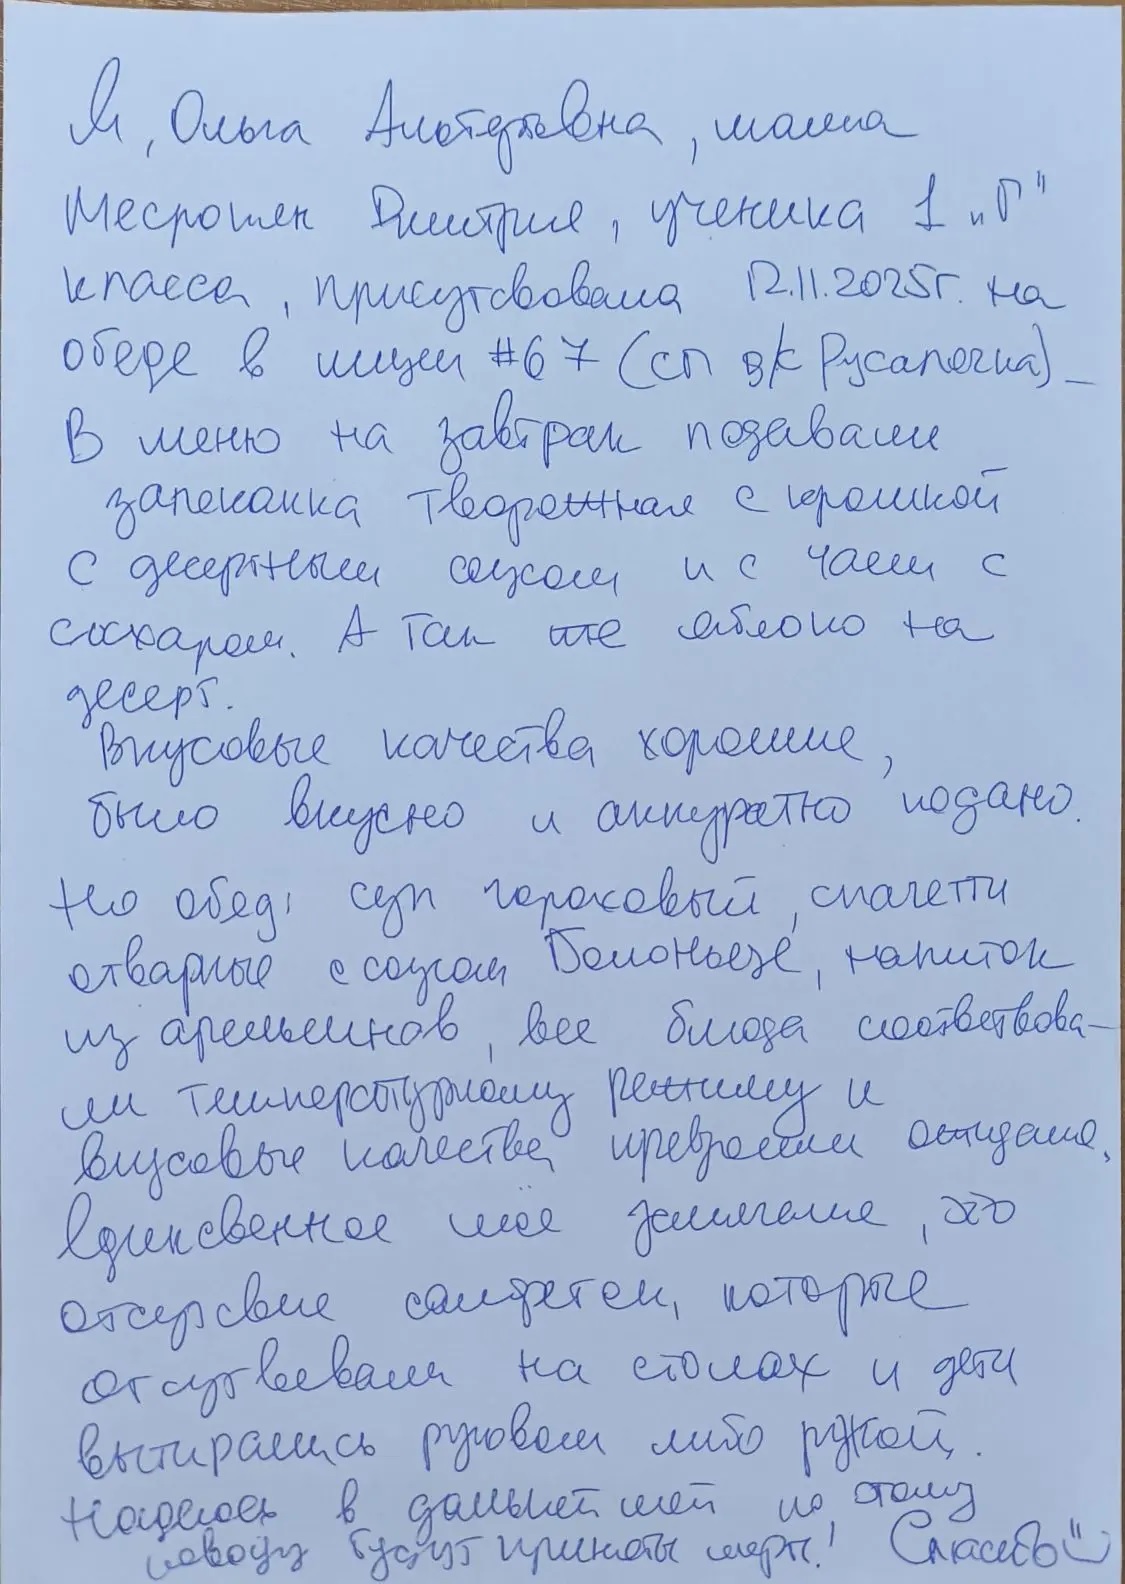 Я, Ольга, мама
Месропян Дмитрия, ученика 1 „Г"
класса, присутсвовала 12.11.2025г. на
обеде в лицеи #67 (сп д/к Русалочка)_
В меню на завтрак подавали
запеканка творожная с крошкой
с десертным соусом и с чаем с
сахаром. А так же яблоко на
десерт.
Вкусовые качества хорошие,
было вкусно и аккуратно подано.
На обед: суп гороховый, спагетти
отварные с соусом Болоньезе, напиток
из апельсинов, все блюда соотвествова-
ли температурному режиму и
вкусовые качества превзошли ожидания,
Единсвенное моё замечание, это
отсутсвие салфеток, которые
отсутвовали на столах и дети
вытирались руковом либо рукой.
Надеюсь в дальнейшем по этому
поводу будут приняты меры! Спасибо